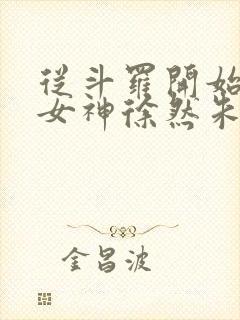 從斗羅開始
女神徐然朱
金昌波